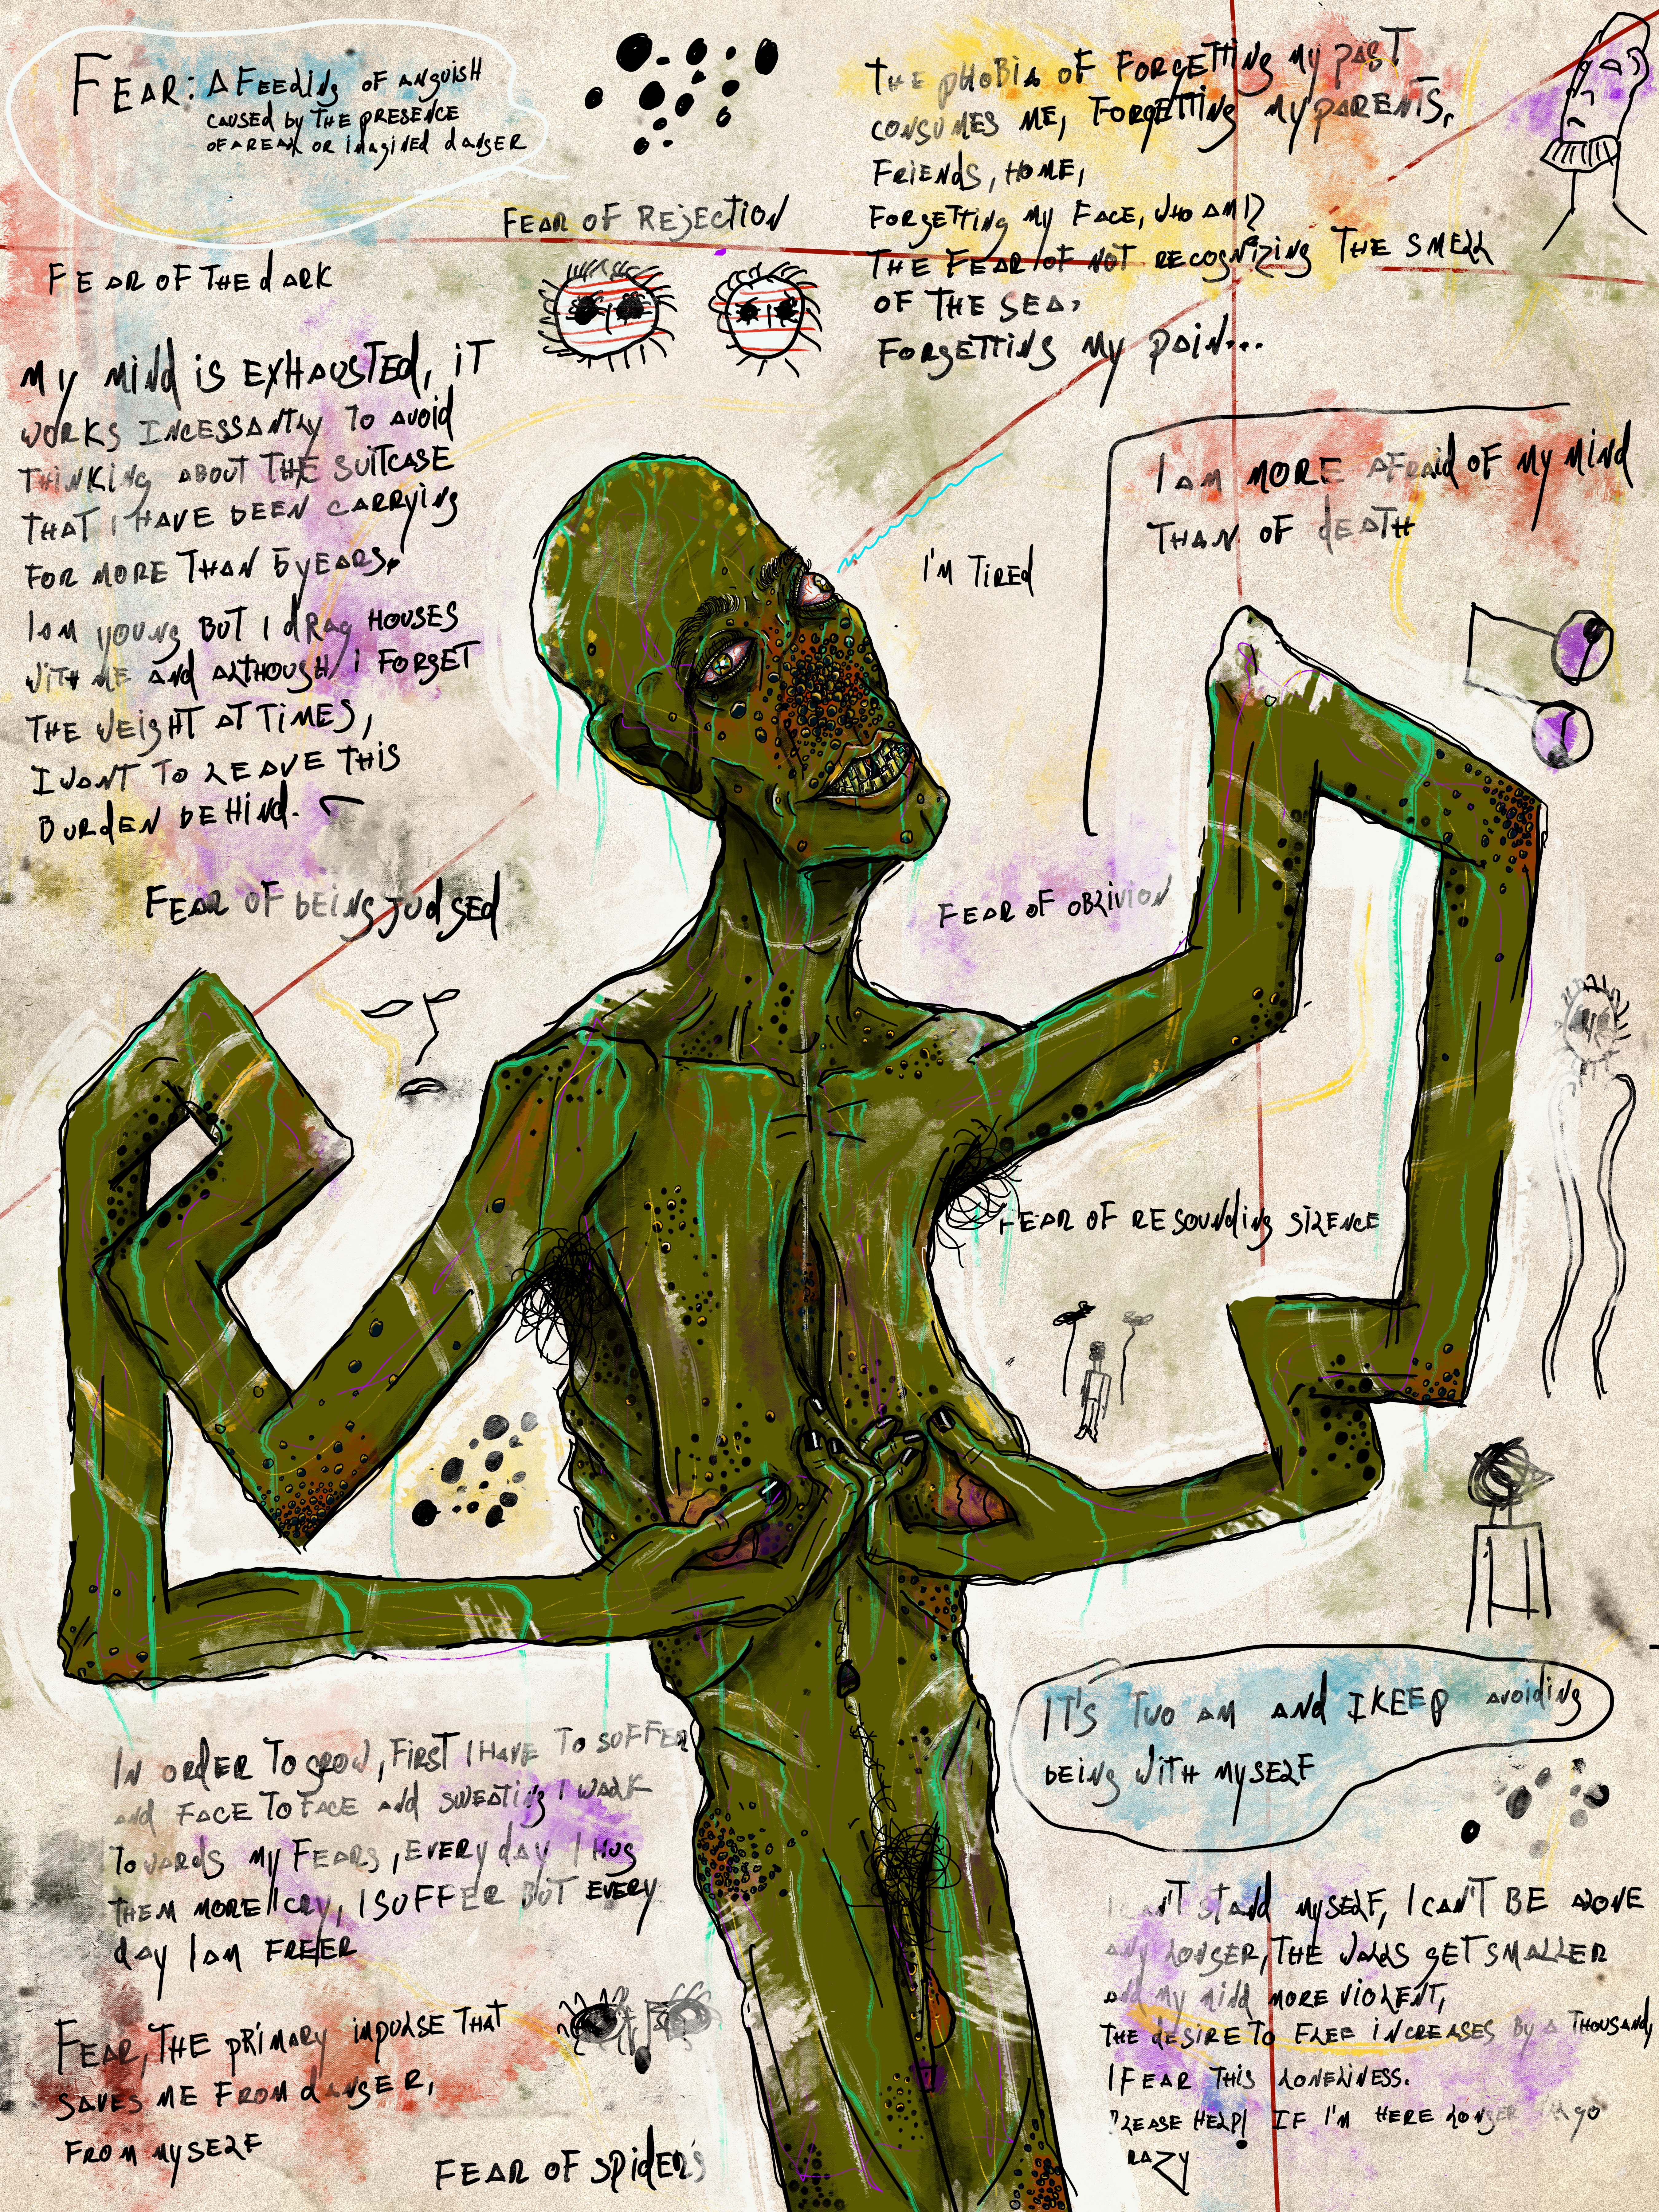 FEAR: A FEEDING OF ANGUISH
CAUSED by THE PRESENCE
OF A REAL OR IMAGINED DANGER
THE PHOBIA OF FORGETTING My PAST
CONSUMES ME, FORGETTING My PARENTS,
FRIENDS, HOME,
FORGETTING My FACE, WHO AM I?
THE FEAR OF NOT RECOGNIZING THE SMELL
OF THE SEA,
FORGETTING My PAIN...
FEAR OF REJECTION
FEAR OF THE DARK
My MIND IS EXHAUSTED, IT
WORKS INCESSANTLY TO AVOID
THINKING ABOUT THE SUITCASE
THAT I HAVE BEEN CARRYING
FOR MORE THAN 5 YEARS,
I AM YOUNG BUT I DRAG HOUSES
WITH ME AND ALTHOUGH I FORGET
THE WEIGHT AT TIMES,
I WANT TO LEAVE THIS
BURDEN BEHIND.
I AM MORE AFRAID OF MY MIND
THAN OF DEATH
I'M TIRED
FEAR OF BEING JUDGED
FEAR OF OBLIVION
FEAR OF RESOUNDING SILENCE
IT'S TWO AM AND I KEEP AVOIDING
BEING WITH MYSELF
IN ORDER TO GROW, FIRST I HAVE TO SUFFER
AND FACE TO FACE AND SWEATING I WALK
TOWARDS MY FEARS, EVERY DAY I HUG
THEM MORE I CRY, I SUFFER BUT EVERY
DAY I AM FREER
I CAN'T STAND MYSELF, I CAN'T BE ALONE
ANY LONGER, THE WALLS GET SMALLER
AND MY MIND MORE VIOLENT,
THE DESIRE TO FLEE INCREASES BY A THOUSAND,
I FEAR THIS LONELINESS.
PLEASE HELP! IF I'M HERE LONGER GO
RAZY
FEAR, THE PRIMARY IMPULSE THAT
SAVES ME FROM DANGER,
FROM MYSELF
FEAR OF SPIDERS